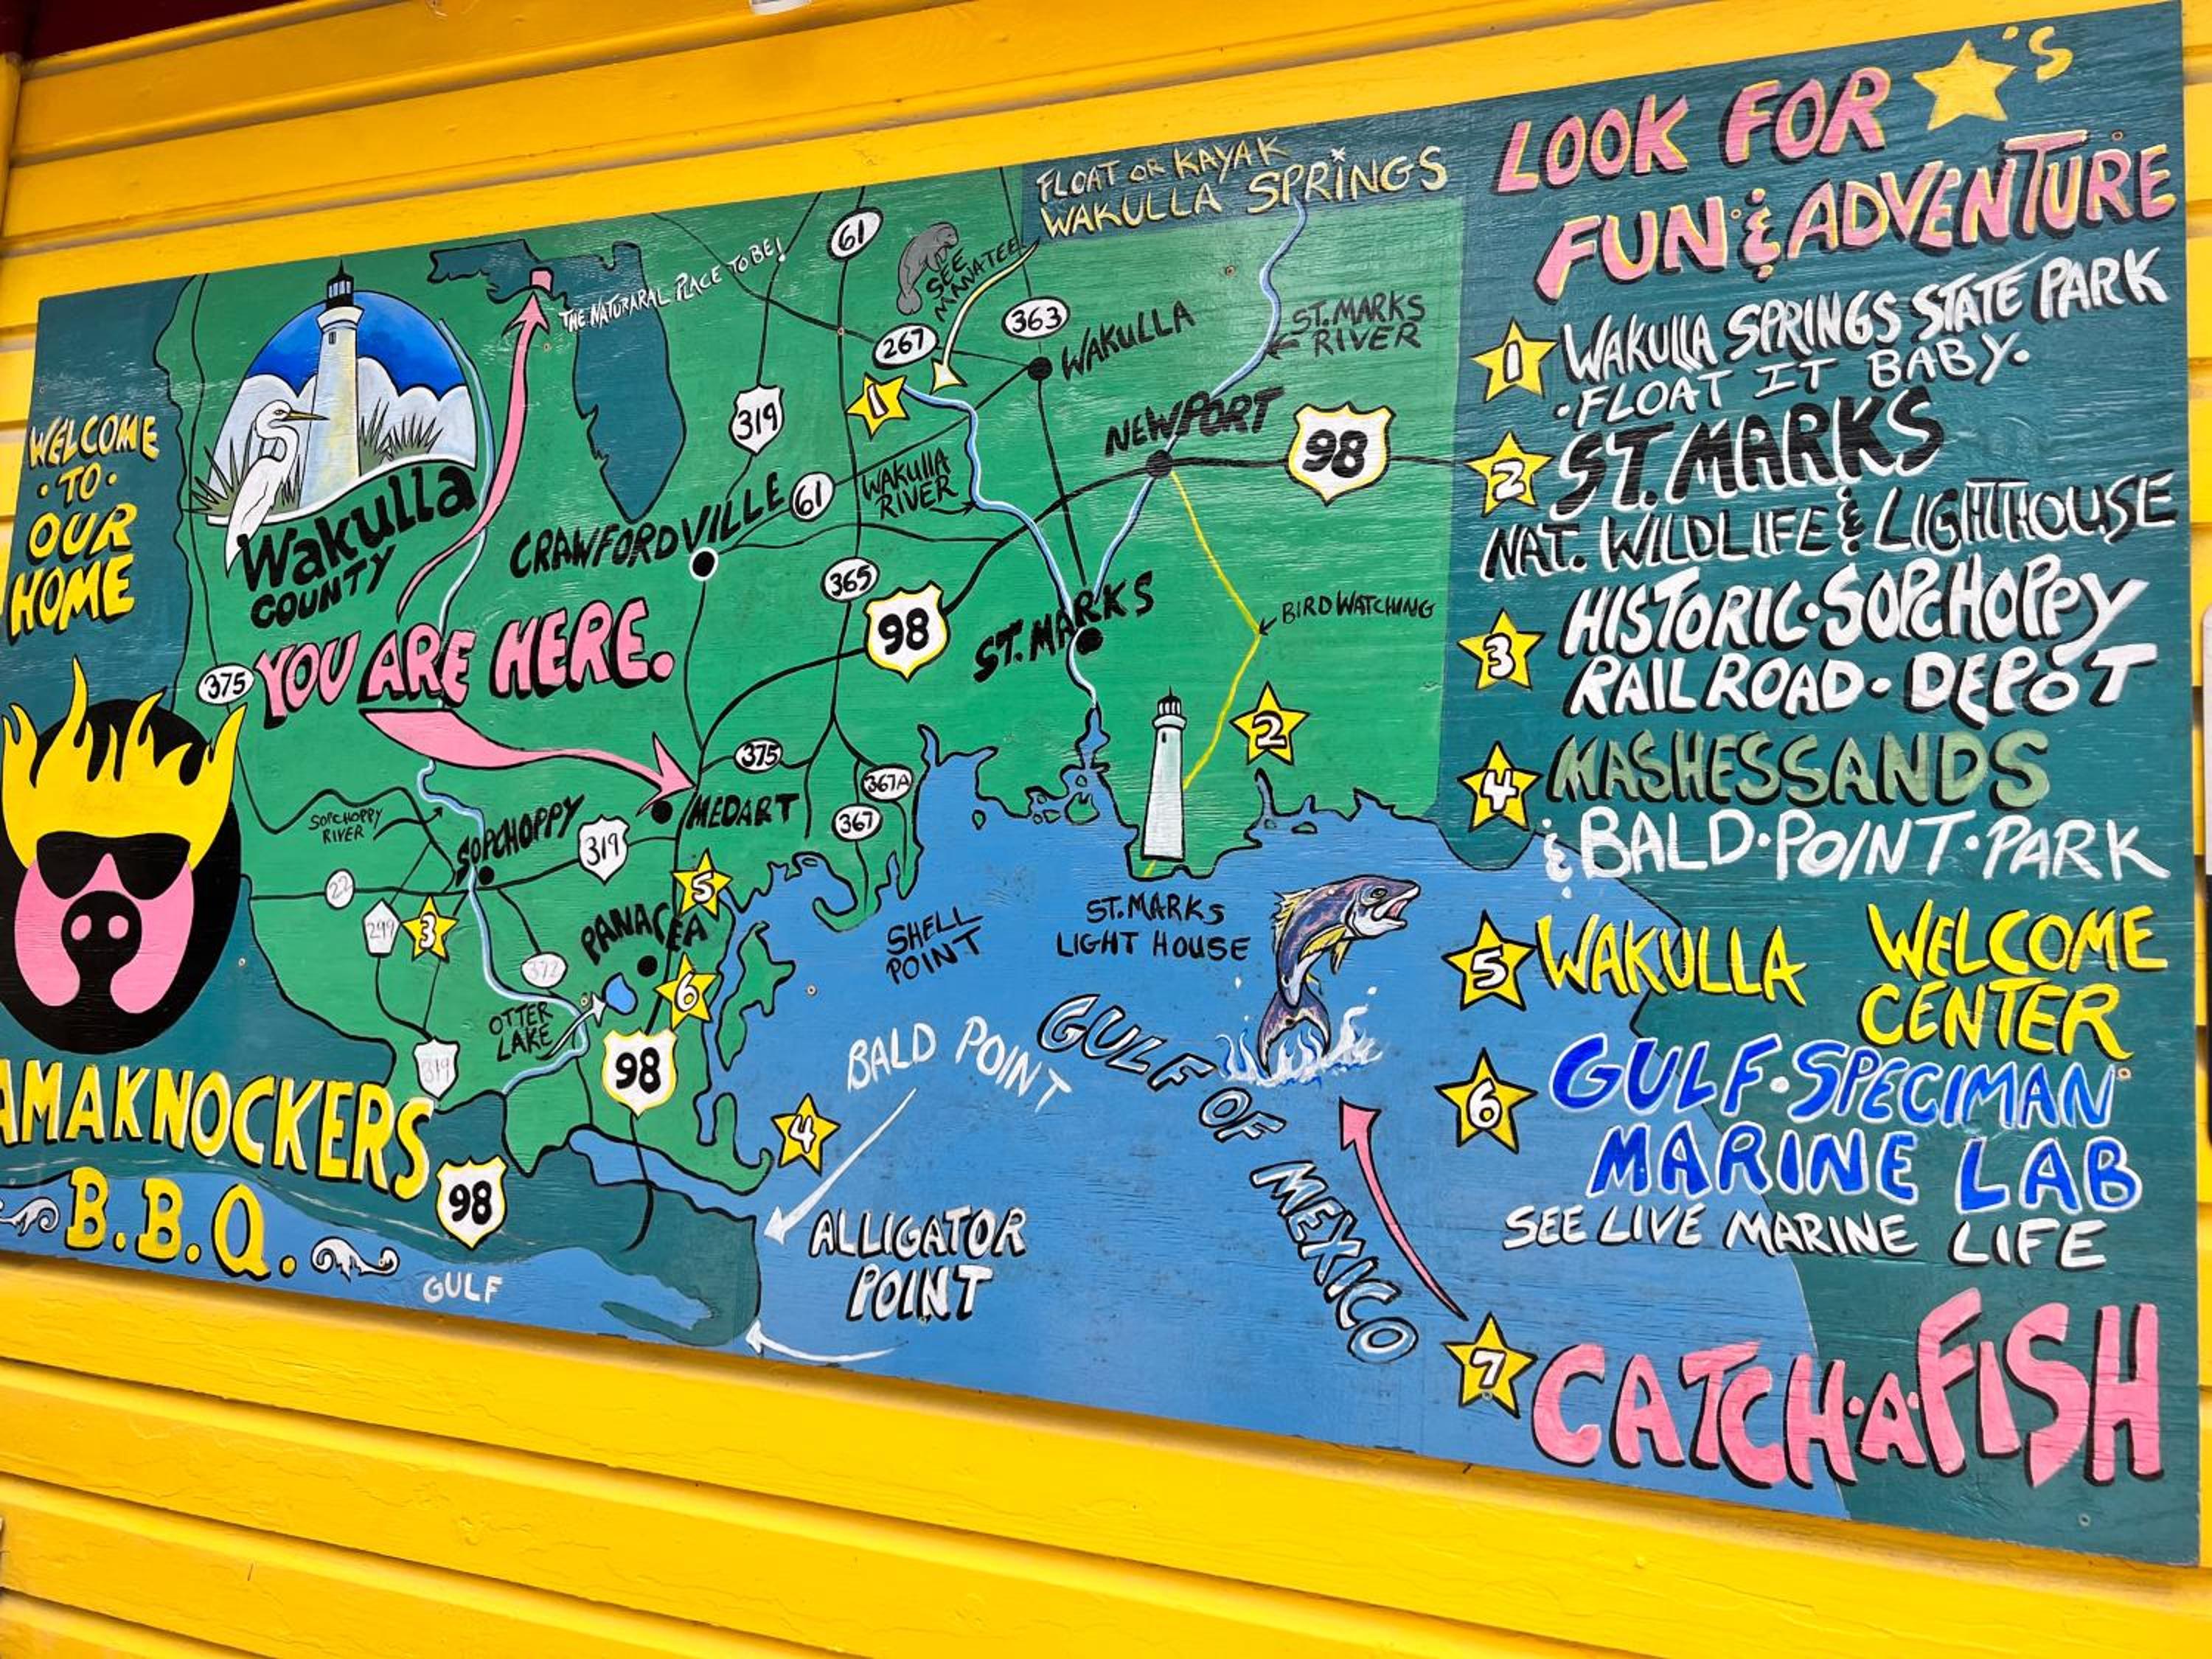 WELCOME
·TO·
OUR
HOME
AMAKNOCKERS
B.B.Q.
Wakulla
COUNTY
YOU ARE HERE.
THE NATURARAL PLACE TO BE!
SEE
MANATEE
FLOAT OR KAYAK
WAKULLA SPRINGS
61
267
363
WAKULLA
ST. MARKS
RIVER
319
1
NEWPORT
98
CRAWFORDVILLE
61
WAKULLA
RIVER
365
98
ST. MARKS
BIRD WATCHING
375
2
375
367A
367
MEDART
SOPCHOPPY
RIVER
SOPCHOPPY
319
22
299
3
5
PANACEA
372
6
OTTER
LAKE
98
319
98
GULF
SHELL
POINT
ST. MARKS
LIGHT HOUSE
BALD POINT
4
ALLIGATOR
POINT
GULF OF MEXICO
LOOK FOR 'S
FUN & ADVENTURE
1 WAKULLA SPRINGS STATE PARK
·FLOAT IT BABY.
2 ST. MARKS
NAT. WILDLIFE & LIGHTHOUSE
3 HISTORIC·SOPCHOPPY
RAILROAD·DEPOT
4 MASHESSANDS
& BALD·POINT·PARK
5 WAKULLA WELCOME
CENTER
6 GULF·SPECIMAN
MARINE LAB
SEE LIVE MARINE LIFE
7 CATCH·A·FISH